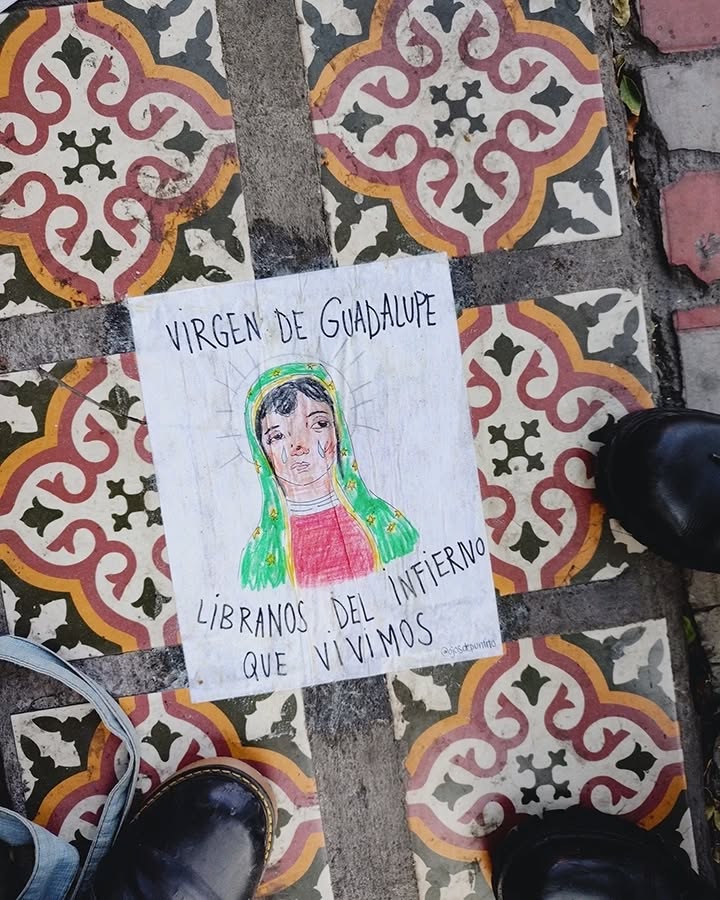 VIRGEN DE GUADALUPE
LIBRANOS DEL INFIERNO
QUE VIVIMOS